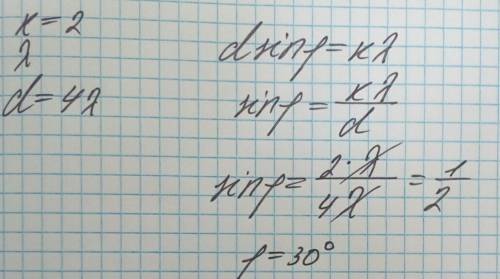 к = 2
λ
d = 4λ
d sinφ = кλ
sinφ = кλ/d
sinφ = 2·λ/4λ = 1/2
φ = 30°